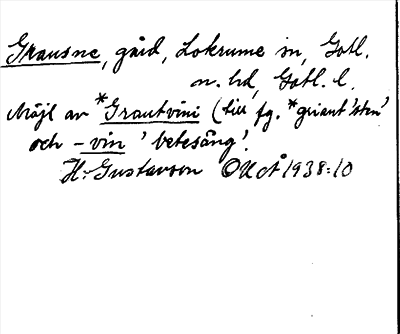 Grausne, gård, Lokrume sn, Gotl.
n. hd, Gotl. l.
Möjl av *Grautvini (till fg. *griant 'sten'
och -vin 'betesäng'.
H. Gustavson OUÅ 1938:10